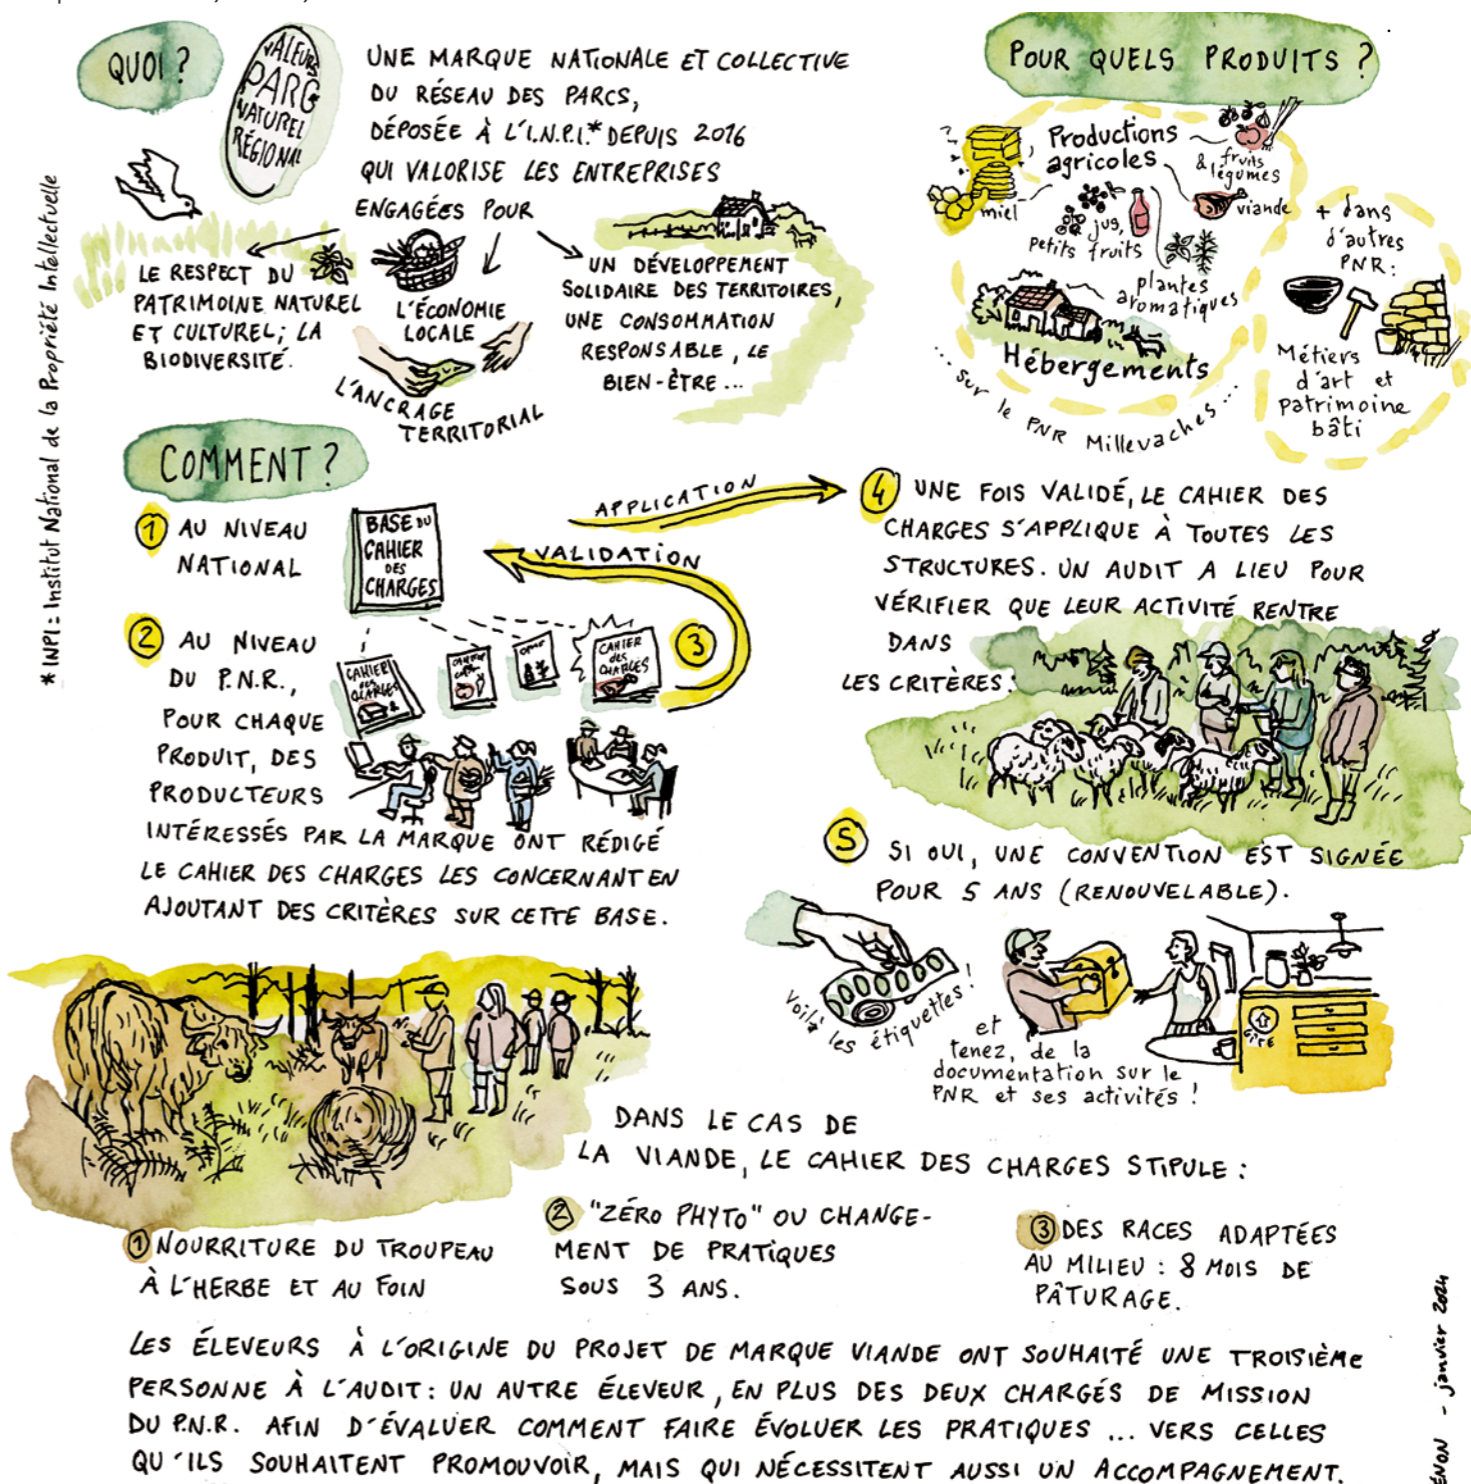 QUOI ?
VALEURS
PARC
NATUREL
RÉGIONAL
UNE MARQUE NATIONALE ET COLLECTIVE
DU RÉSEAU DES PARCS,
DÉPOSÉE À L'I.N.P.I.* DEPUIS 2016
QUI VALORISE LES ENTREPRISES
ENGAGÉES POUR
LE RESPECT DU
PATRIMOINE NATUREL
ET CULTUREL ; LA
BIODIVERSITÉ.
L'ÉCONOMIE
LOCALE
L'ANCRAGE
TERRITORIAL
UN DÉVELOPPEMENT
SOLIDAIRE DES TERRITOIRES,
UNE CONSOMMATION
RESPONSABLE, LE
BIEN-ÊTRE ...
* INPI : Institut National de la Propriété Intellectuelle
POUR QUELS PRODUITS ?
Productions
agricoles
fruits
& légumes
miel
viande
jus,
petits fruits
plantes
aromatiques
Hébergements
... sur le PNR Millevaches ...
+ dans
d'autres
PNR :
Métiers
d'art et
patrimoine
bâti
COMMENT ?
1 AU NIVEAU
NATIONAL
BASE DU
CAHIER
DES
CHARGES
APPLICATION
VALIDATION
2 AU NIVEAU
DU P.N.R.,
POUR CHAQUE
PRODUIT, DES
PRODUCTEURS
INTÉRESSÉS PAR LA MARQUE ONT RÉDIGÉ
LE CAHIER DES CHARGES LES CONCERNANT EN
AJOUTANT DES CRITÈRES SUR CETTE BASE.
CAHIER
des
CHARGES
CAHIER
des
CHARGES
3
4 UNE FOIS VALIDÉ, LE CAHIER DES
CHARGES S'APPLIQUE À TOUTES LES
STRUCTURES. UN AUDIT A LIEU POUR
VÉRIFIER QUE LEUR ACTIVITÉ RENTRE
DANS
LES CRITÈRES.
5 SI OUI, UNE CONVENTION EST SIGNÉE
POUR 5 ANS (RENOUVELABLE).
Voilà les étiquettes !
et
tenez, de la
documentation sur le
PNR et ses activités !
GÎTE
DANS LE CAS DE
LA VIANDE, LE CAHIER DES CHARGES STIPULE :
1 NOURRITURE DU TROUPEAU
À L'HERBE ET AU FOIN
2 "ZÉRO PHYTO" OU CHANGE-
MENT DE PRATIQUES
SOUS 3 ANS.
3 DES RACES ADAPTÉES
AU MILIEU : 8 MOIS DE
PÂTURAGE.
LES ÉLEVEURS À L'ORIGINE DU PROJET DE MARQUE VIANDE ONT SOUHAITÉ UNE TROISIÈME
PERSONNE À L'AUDIT : UN AUTRE ÉLEVEUR, EN PLUS DES DEUX CHARGÉS DE MISSION
DU P.N.R. AFIN D'ÉVALUER COMMENT FAIRE ÉVOLUER LES PRATIQUES ... VERS CELLES
QU'ILS SOUHAITENT PROMOUVOIR, MAIS QUI NÉCESSITENT AUSSI UN ACCOMPAGNEMENT.
- janvier 2024